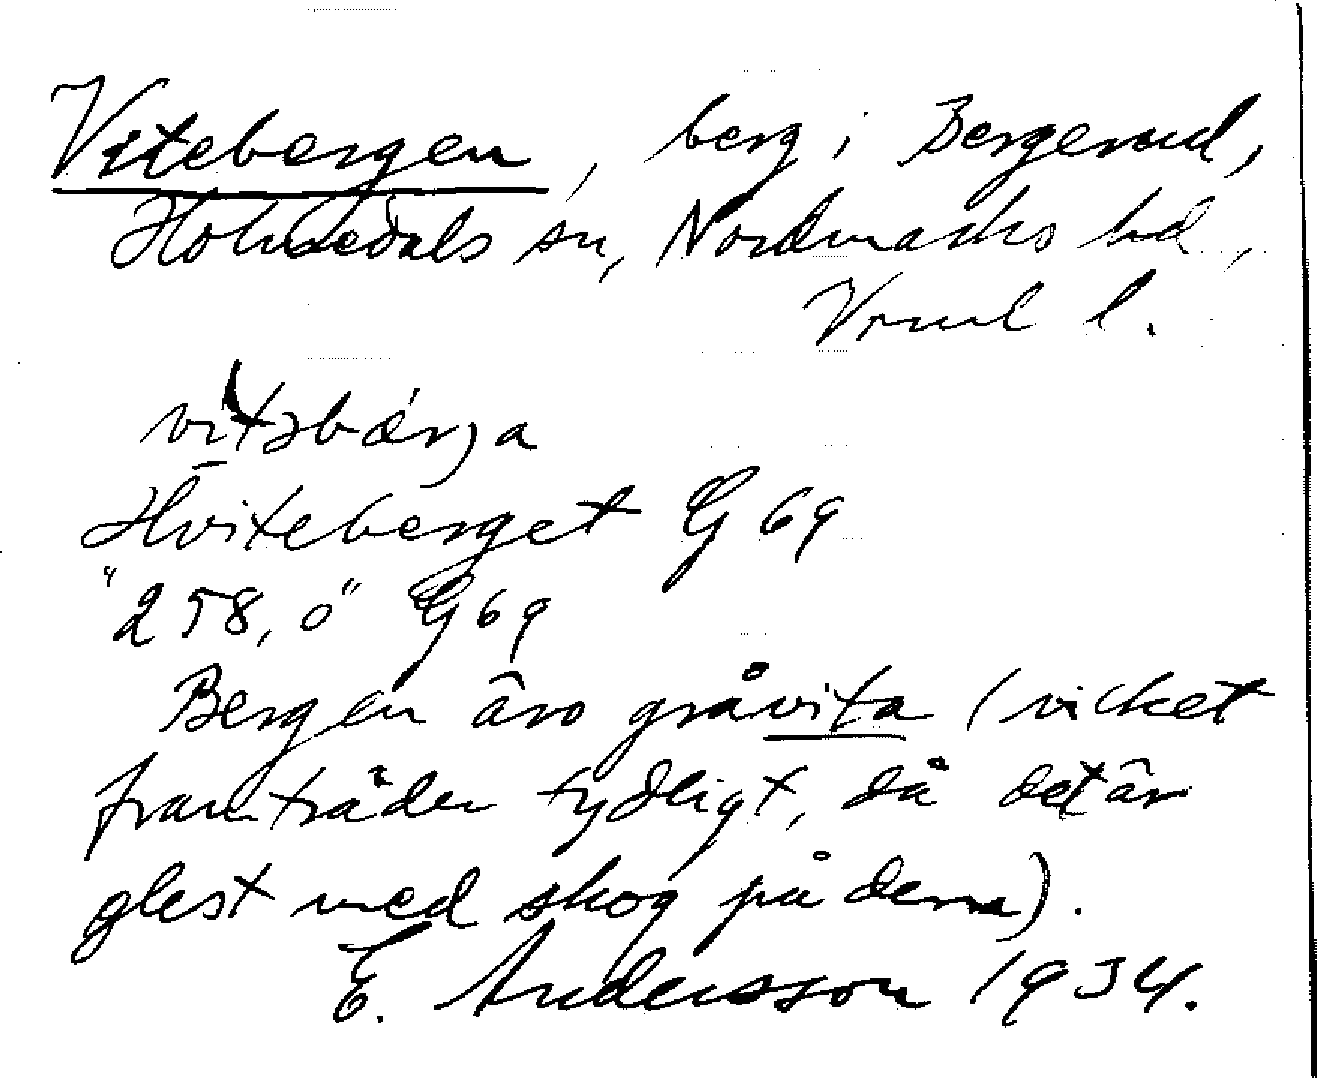 Vitebergen, berg i Bergerud,
Holmedals sn, Nordmarks hd.,
Vrml l.
Hviteberget G 69
"258,0" G 69
Bergen äro gråvita (vicket
framträder tydligt, då det är
glest med skog på dem).
E. Andersson 1934.